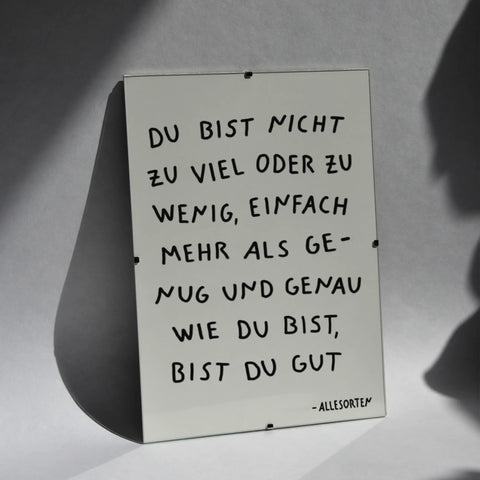 DU BIST NICHT
ZU VIEL ODER ZU
WENIG, EINFACH
MEHR ALS GE-
NUG UND GENAU
WIE DU BIST,
BIST DU GUT
- ALLESORTEN